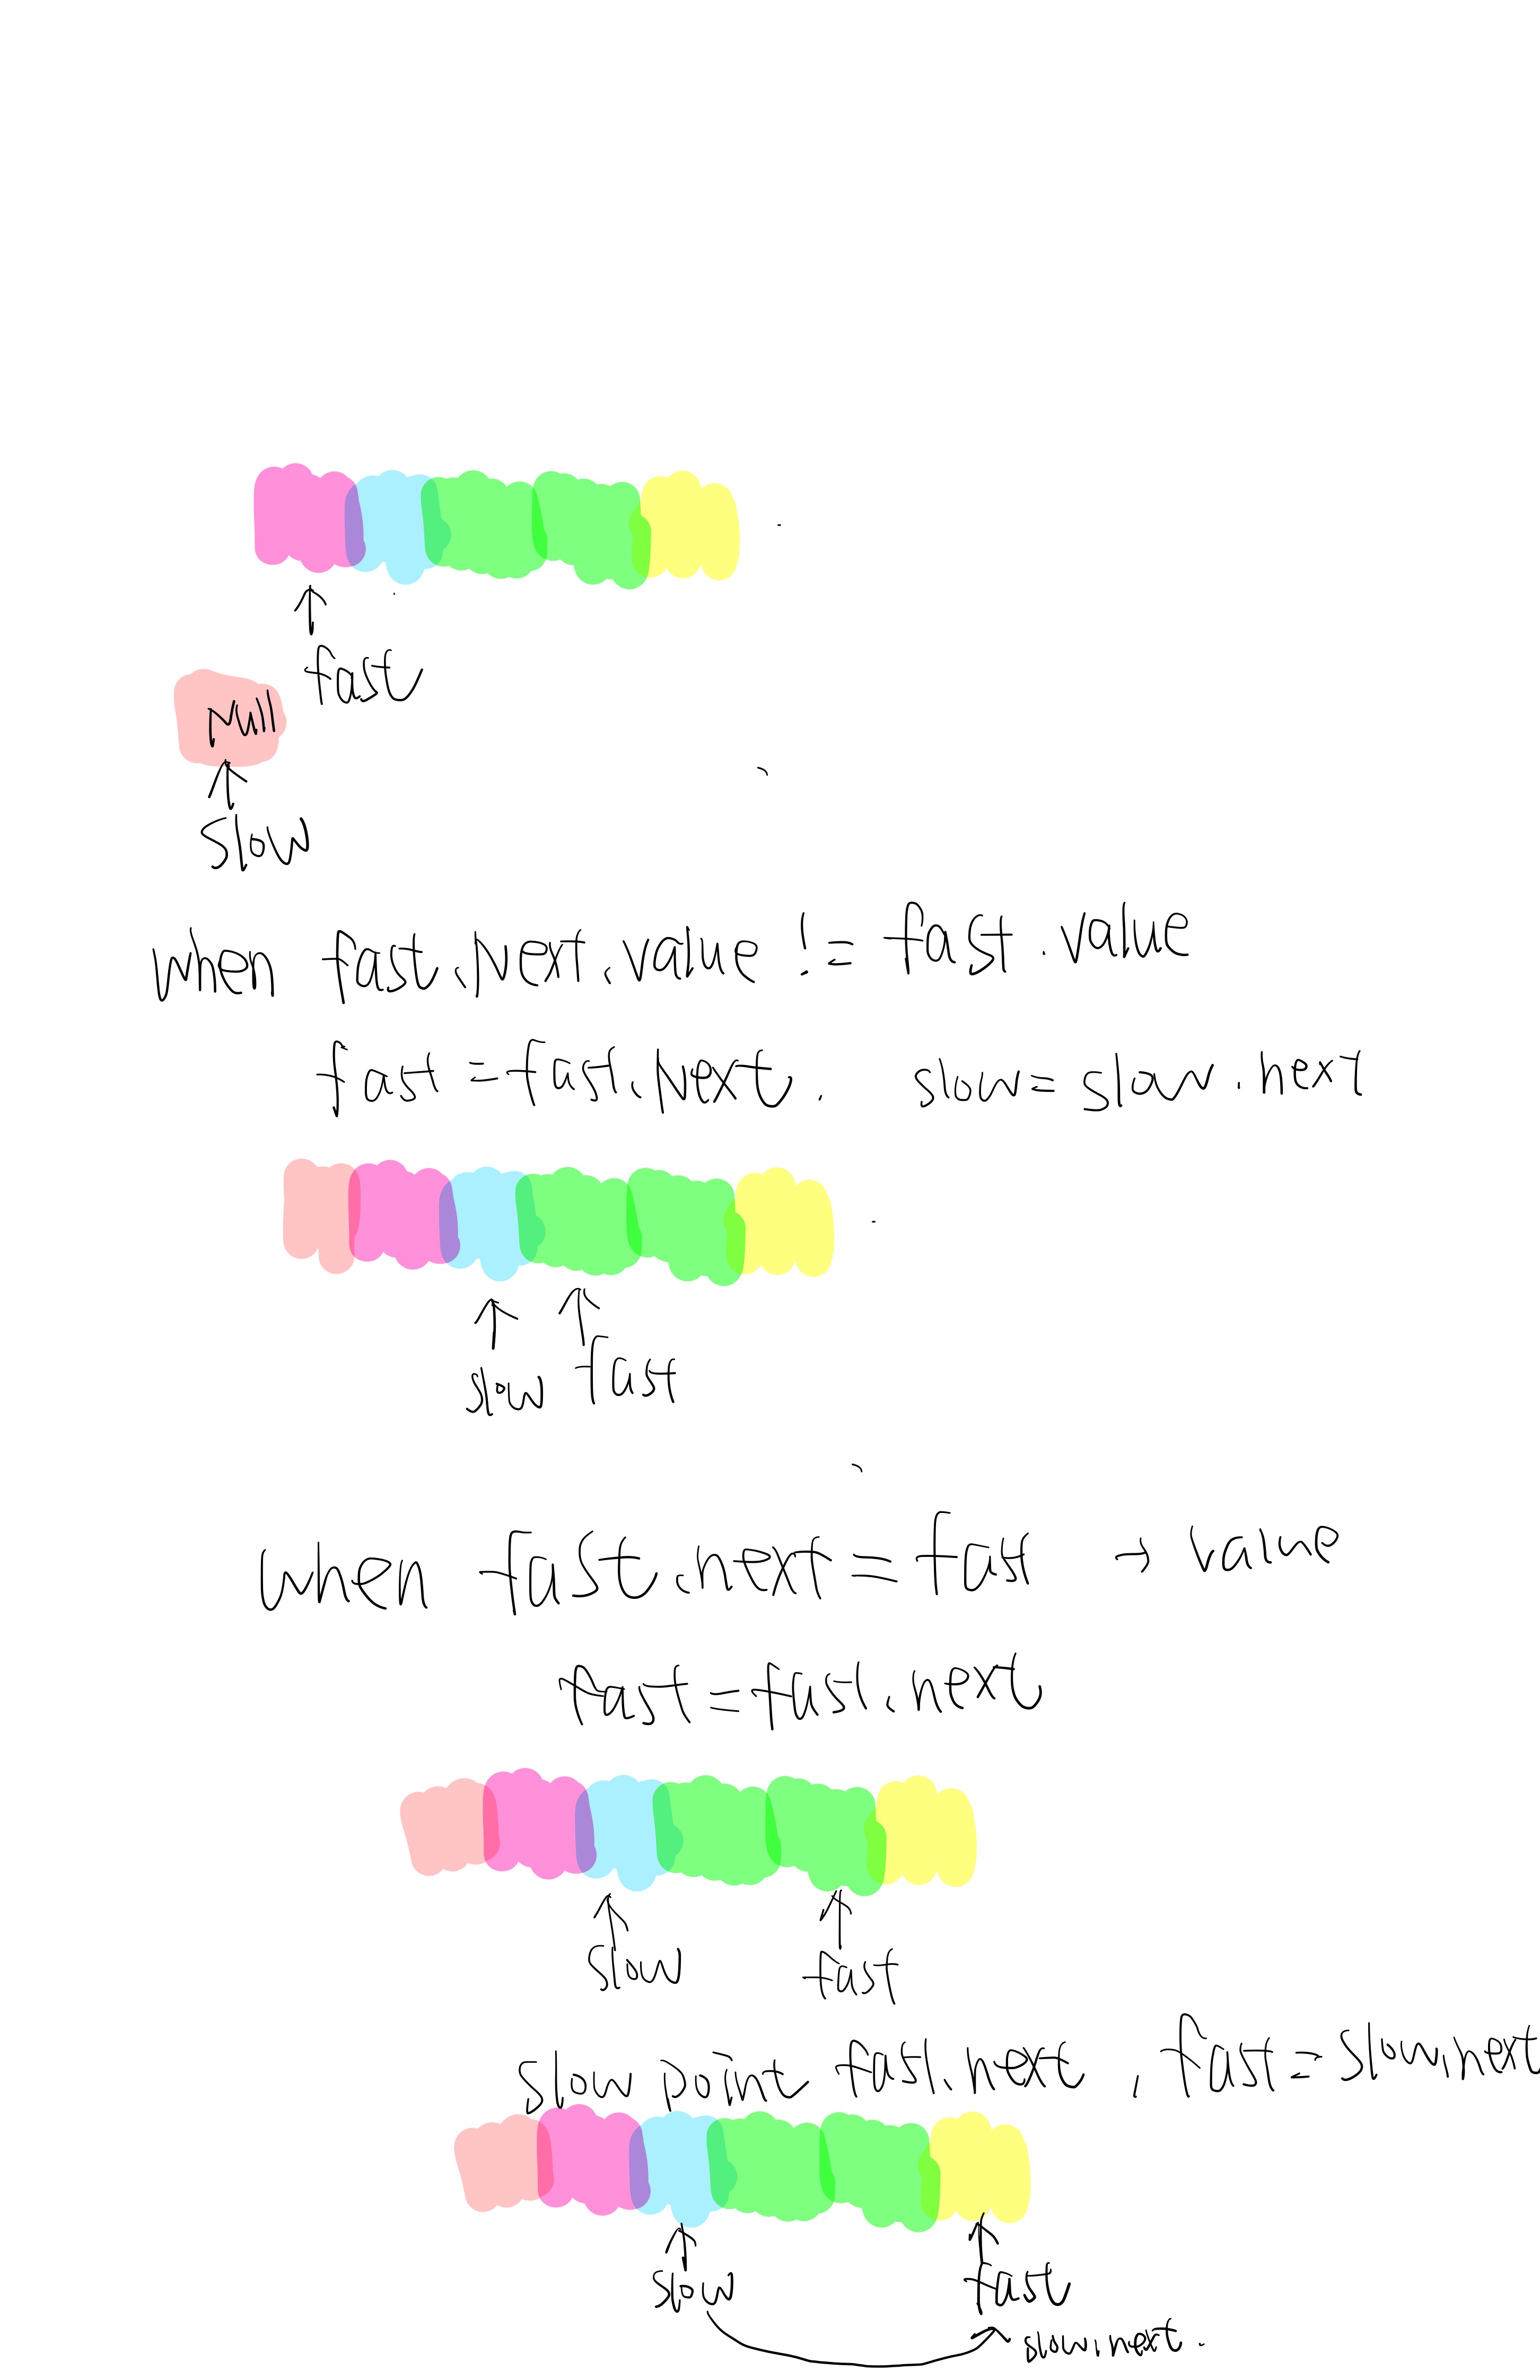 fast
Null
slow
when fast.Next.value != fast.value
fast = fast.Next. slow = slow.next
slow fast
when fast.next = fast → value
fast = fast.next
slow fast
slow point fast.next , fast = slow.next
slow fast
slow.next.